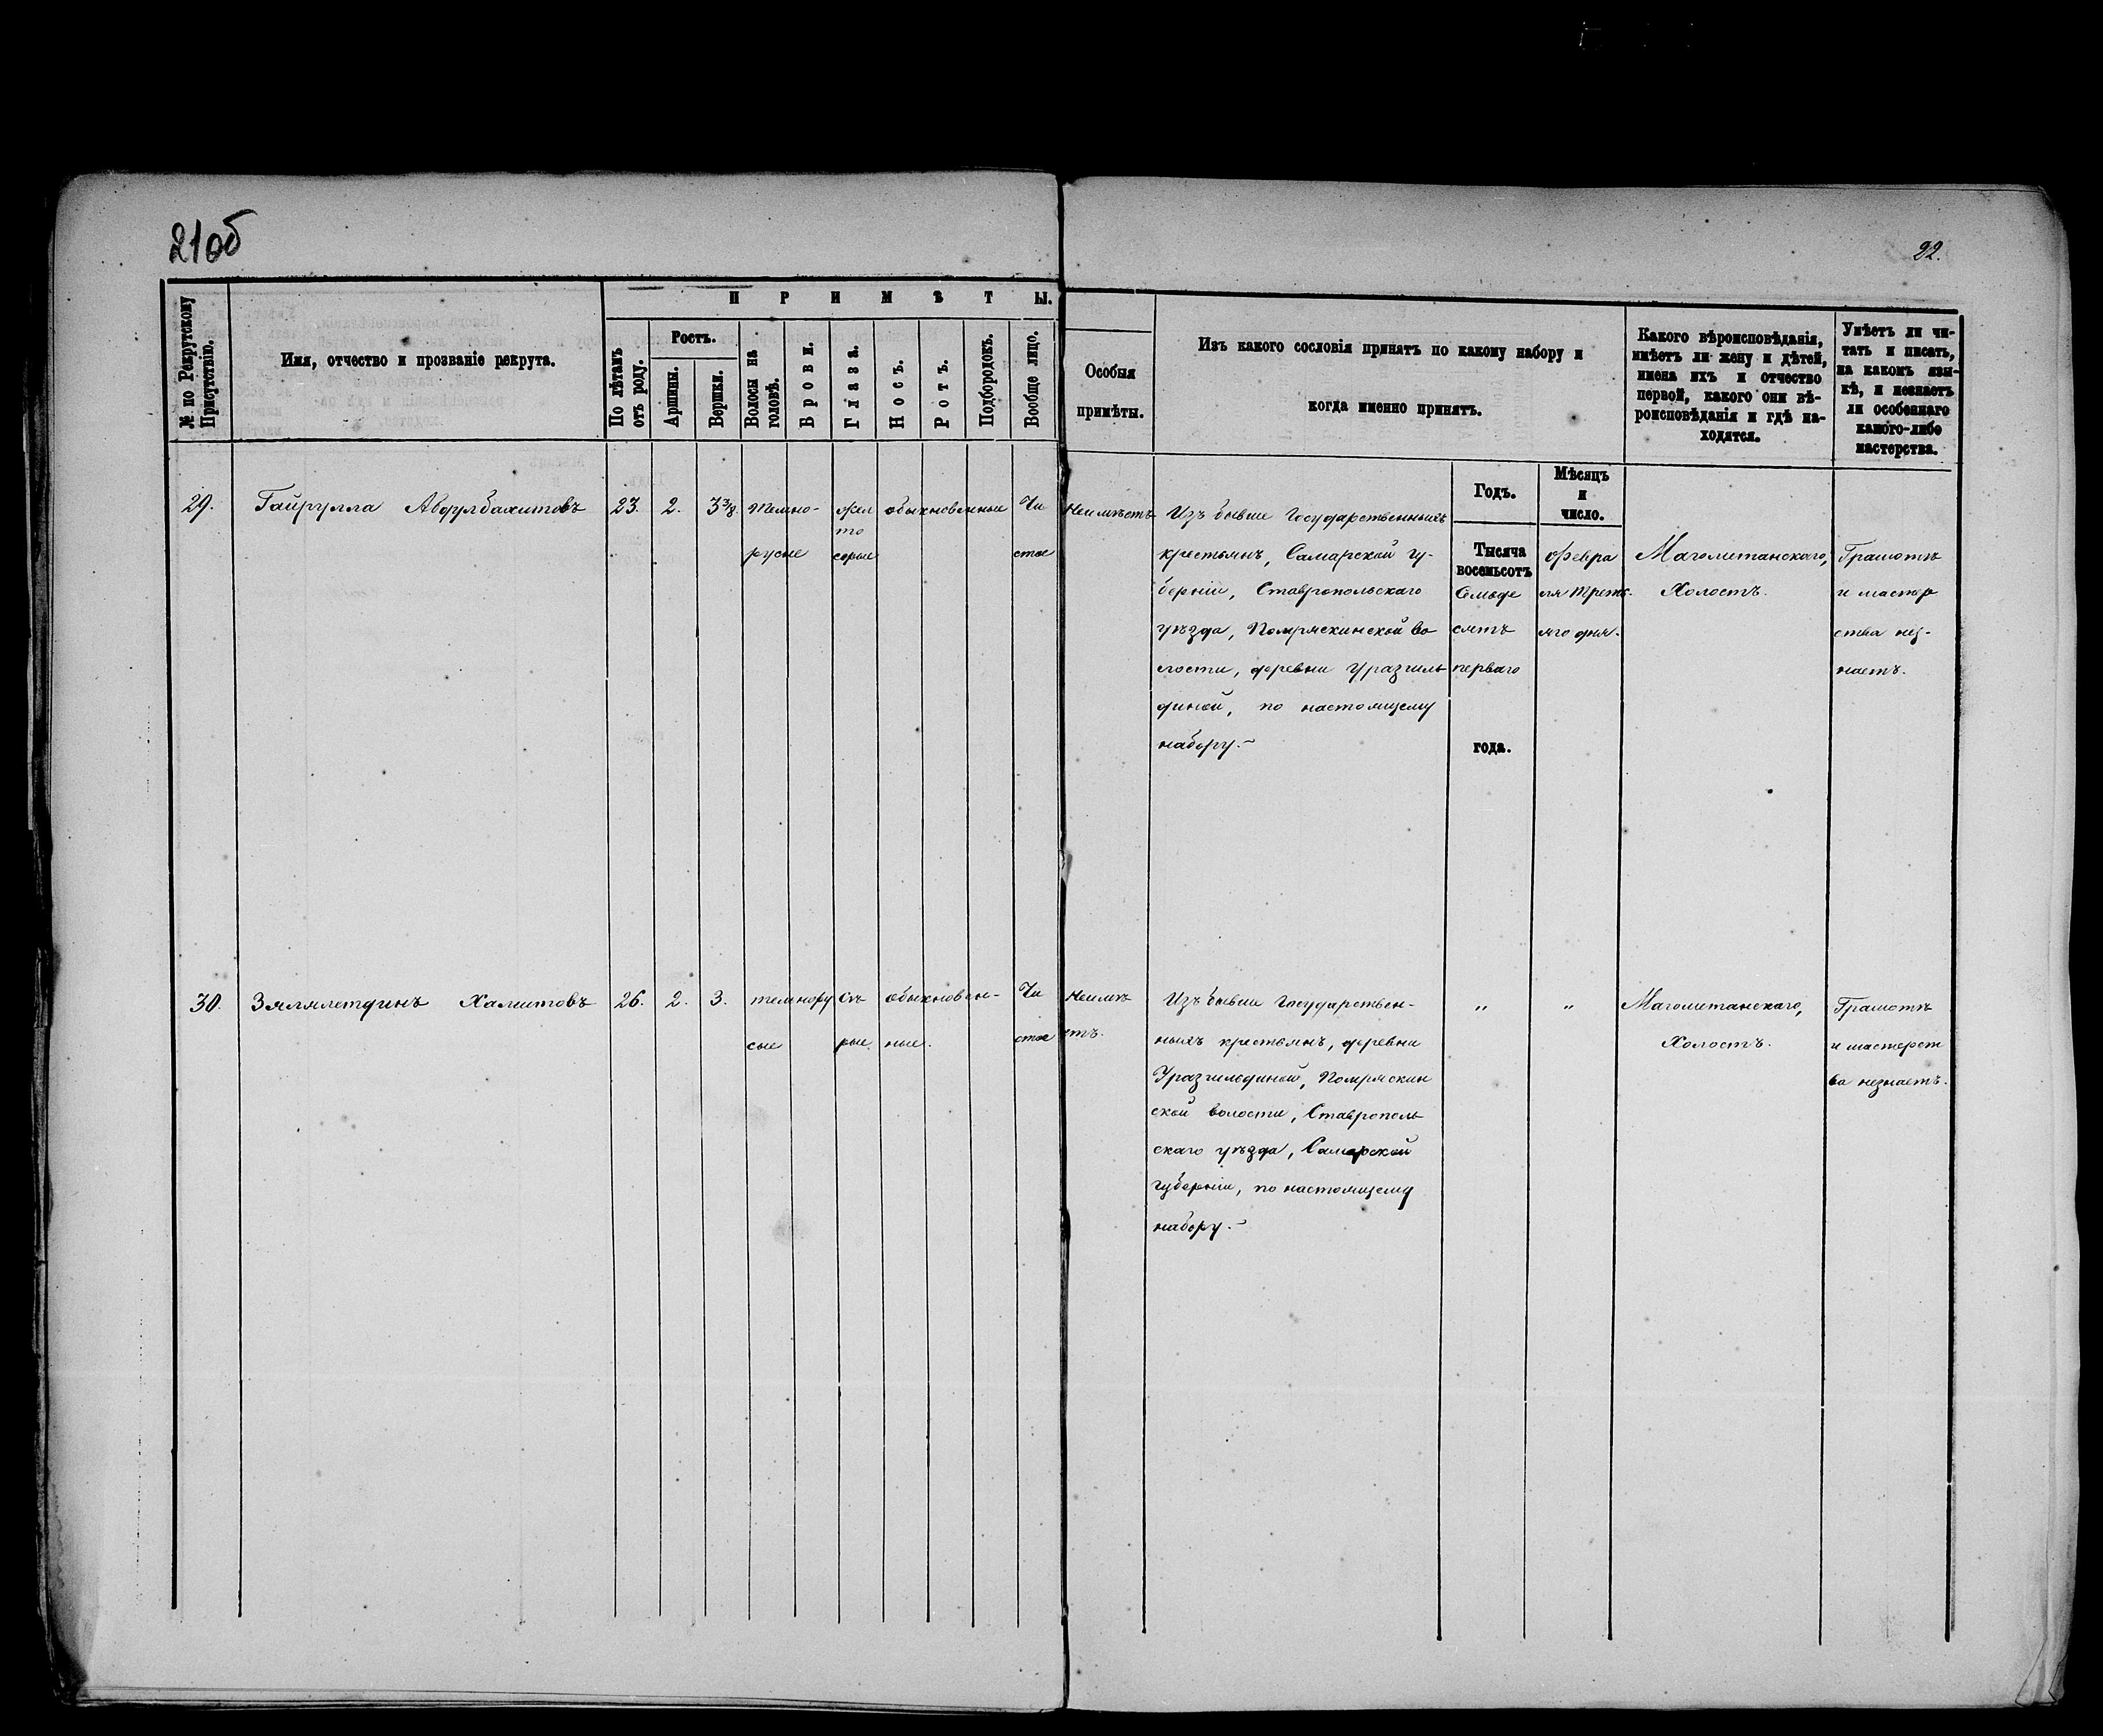 21об
22.
№ по Рекрутскому Присутствію.
Имя, отчество и прозваніе рекрута.
ПРИМѢТЫ.
По лѣтамъ отъ роду.
Ростъ.
Аршин.
Вершки.
Волосы на головѣ.
Брови.
Глаза.
Носъ.
Ротъ.
Подбородокъ.
Вообще лицо.
Особыя
примѣты.
Изъ какого сословія принятъ по какому набору и
когда именно принятъ.
Годъ.
Мѣсяцъ
и
число.
Какого вѣроисповѣданія,
имѣетъ ли жену и дѣтей,
имена ихъ и отчество
первой, какого они вѣ-
роисповѣданія и гдѣ на-
ходятся.
Умѣетъ ли чи-
тать и писать,
на какомъ язы-
кѣ, и незнаетъ
ли особеннаго
какого-либо
мастерства.
29.
Гайрулла Абдулбахитовъ
23.
2.
3 3/8.
Темно-
русые
жел
то
серые
обыкновенные
Чи
стое
Неимѣетъ
Изъ бывше Государственныхъ
крестьянъ, Самарской гу-
берніи, Ставропольскаго
уѣзда, Помряскинской во
лости, деревни Уразгиль
диной, по настоящему
набору.-
Тысяча
восемьсотъ
Семьде
сятъ
перваго
года.
Февра
ля треть
яго дня.
Магометанскаго,
Холостъ.
Грамотѣ
и мастер
ства нез-
наетъ.
30.
Зялялетдинъ Халитовъ
26.
2.
3.
темнору
сые
Сѣ
рые
обыкновен-
ные.
Чи
стое
Неимѣ
етъ.
Изъ бывше Государствен-
ныхъ крестьянъ, деревни
Уразгильдиной, Помряскин
ской волости, Ставрополь
скаго уѣзда, Самарской
губерніи, по настоящему
набору.-
"
"
Магометанскаго,
Холостъ.
Грамотѣ
и мастерст
ва незнаетъ.